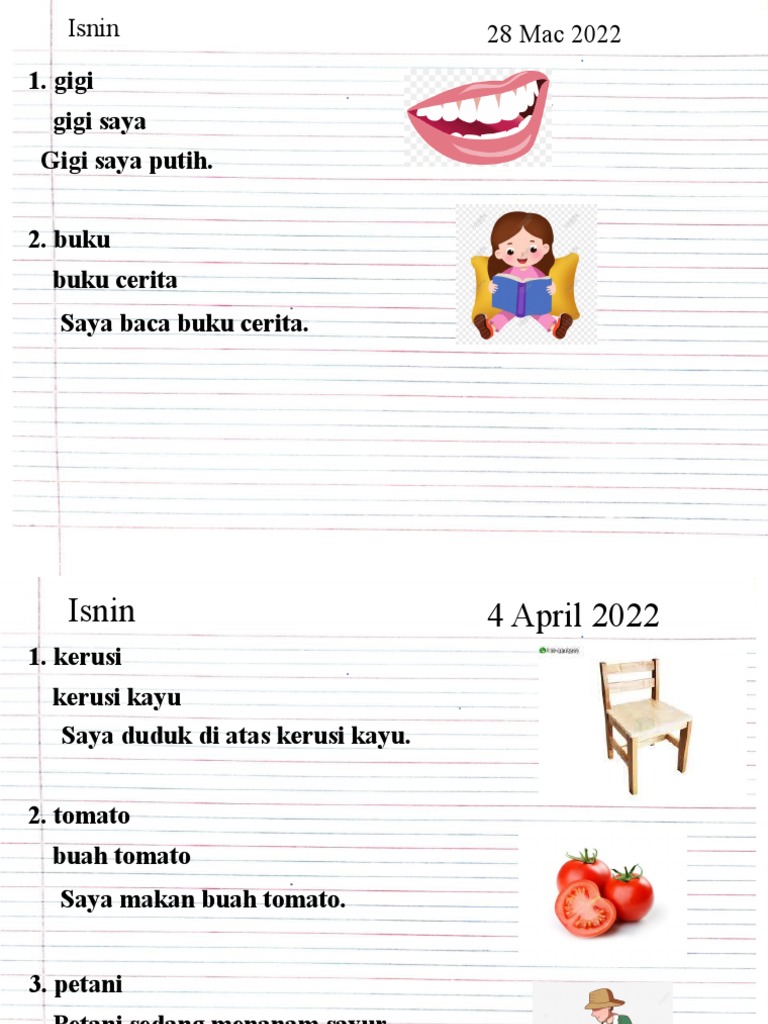 Isnin
28 Mac 2022
1. gigi
gigi saya
Gigi saya putih.
2. buku
buku cerita
Saya baca buku cerita.
Isnin
4 April 2022
1. kerusi
kerusi kayu
Saya duduk di atas kerusi kayu.
2. tomato
buah tomato
Saya makan buah tomato.
3. petani
Petani sedang menanam sayur